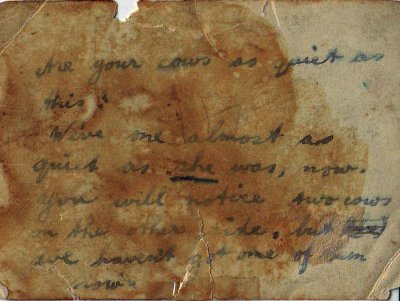 Are your cows as quiet as
this?
We've one almost as
quiet as she was, now.
You will notice two cows
on the other side, but
we haven't got one of them
now.